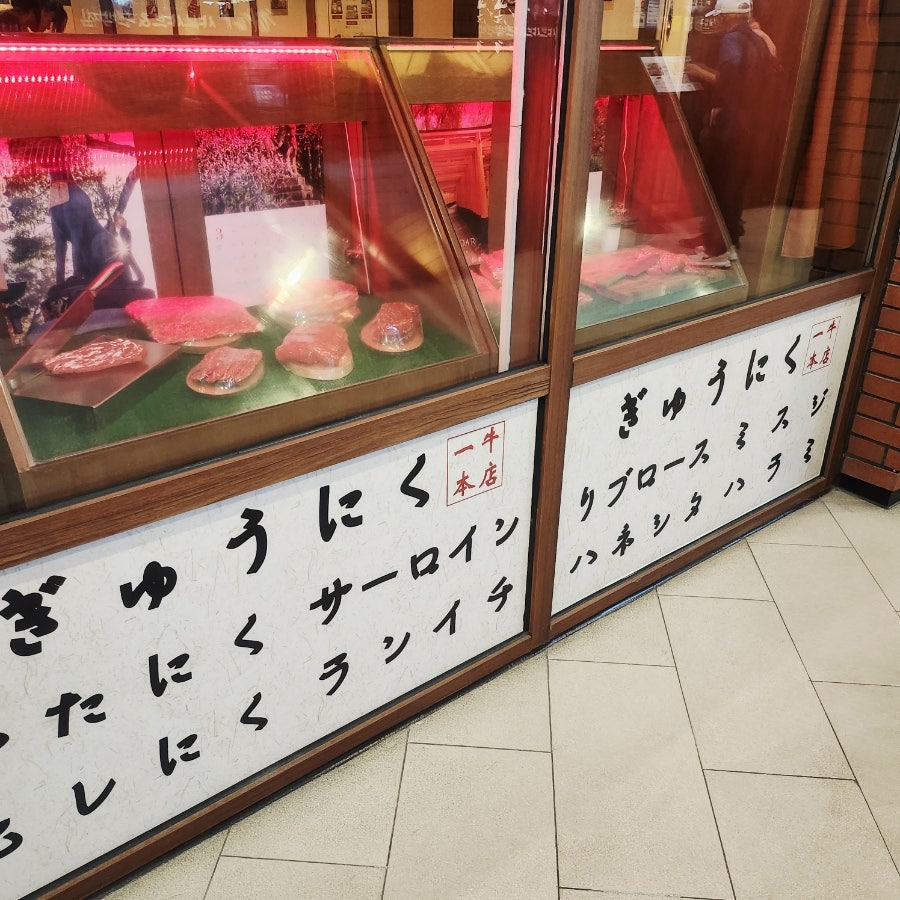 ぎゅうにく
一牛
本店
たにく サーロイン
しにく ランイチ
ぎゅうにく
一牛
本店
リブロース ミスジ
ハネシタ ハラミ
3